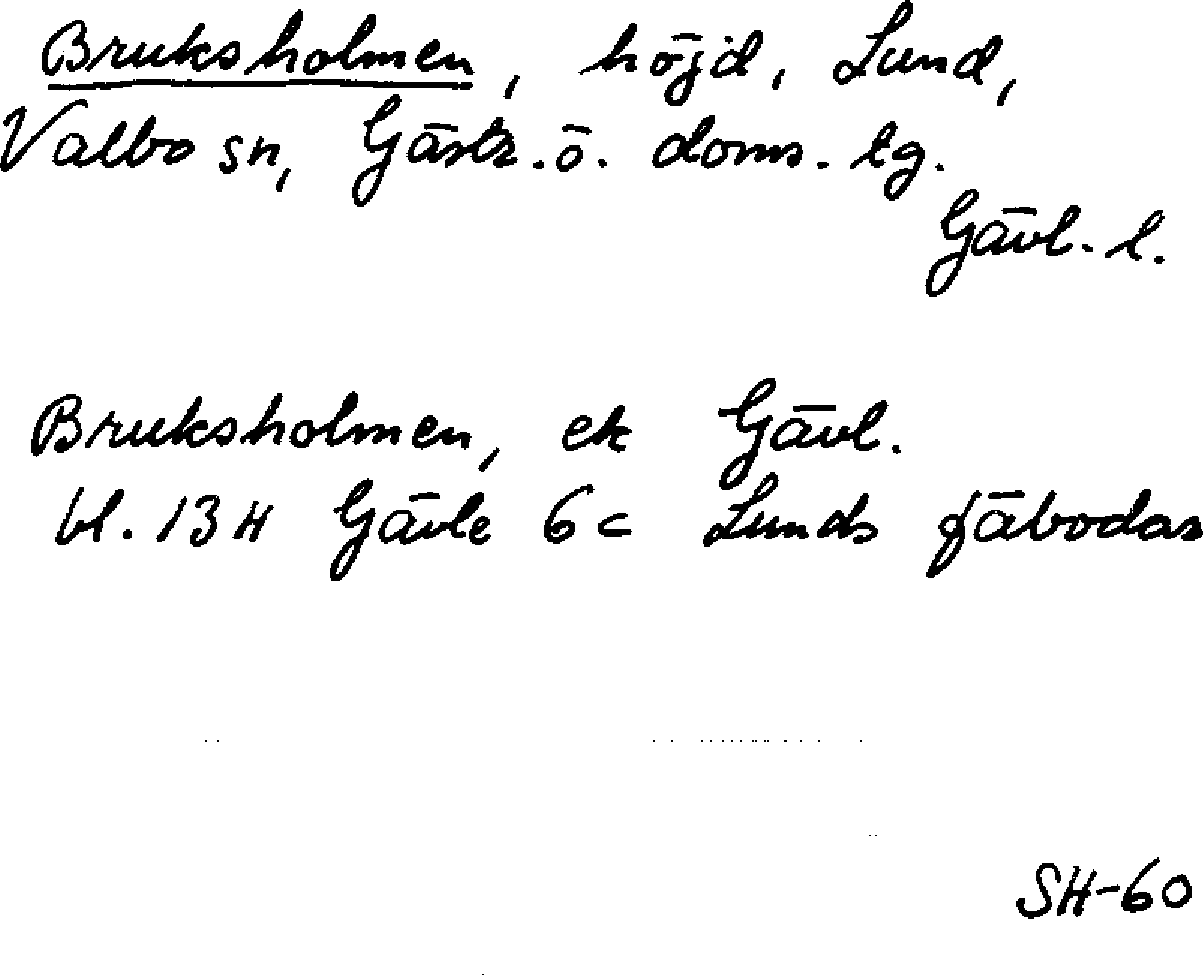 Bruksholmen, höjd, Lund,
Valbo sn, Gästr. ö. doms. tg.
Gävl. l.
Bruksholmen, ek Gävl.
bl. 13 H Gävle 6 c Lunds fäbodar
SH-60